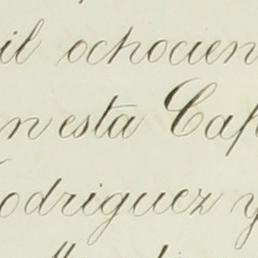 il ochocien
n esta Cap
odriguez y